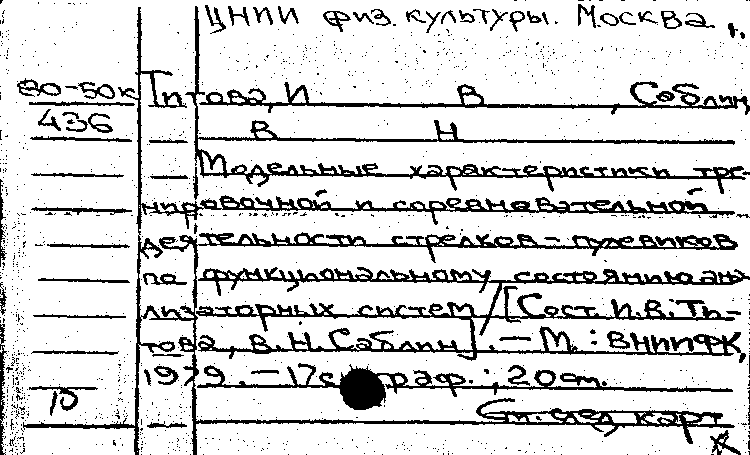 ЦНИИ физ. культуры. Москва.
80-50к Титова, И В , Саблин,
436 В Н
Модельные характеристики тре-
нировочной и соревновательной
деятельности стрелков-пулевиков
по функциональному состоянию ана-
лизаторных систем / [Сост. И.В. Ти-
това, В.Н. Саблин]. — М. : ВНИИФК,
1979. — 17с граф. ; 20 см.
10 См. след. карт